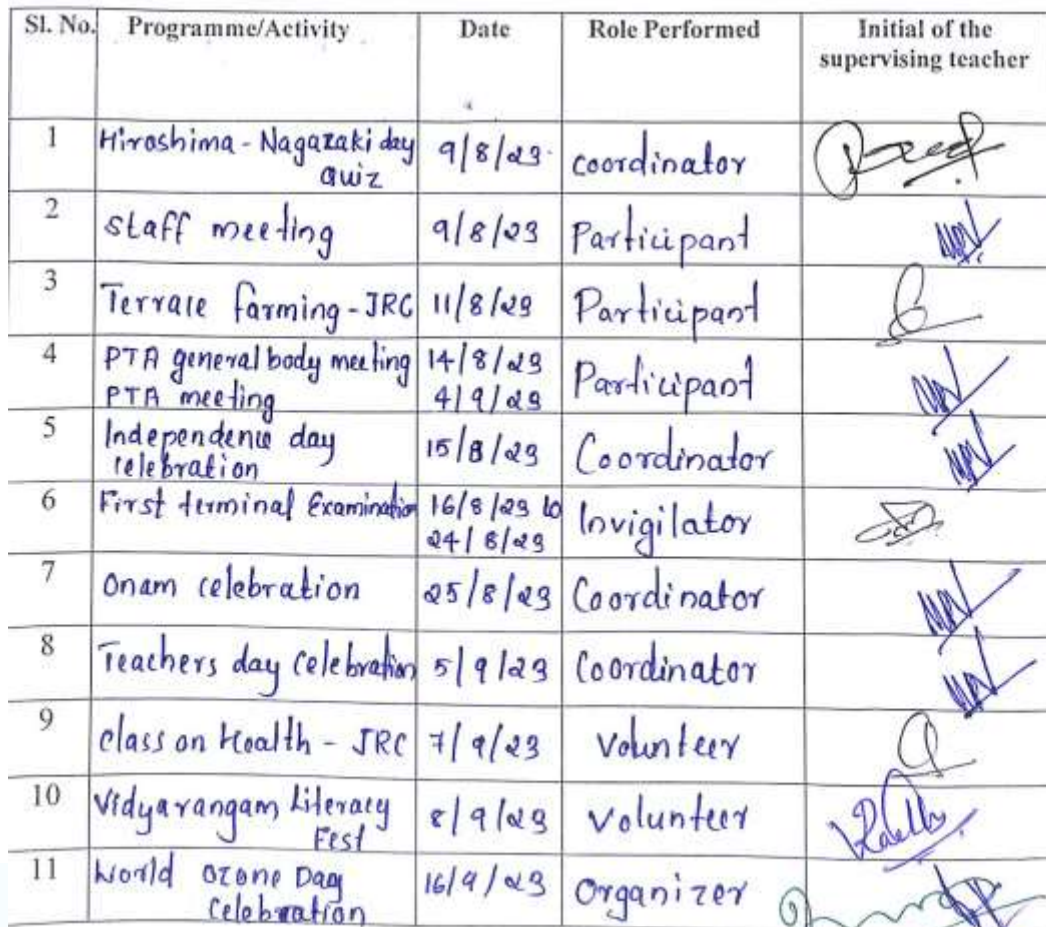 Sl. No. Programme/Activity Date Role Performed Initial of the
supervising teacher
1 Hiroshima - Nagazaki day 9/8/23 coordinator
Quiz
2 Staff meeting 9/8/23 Participant
3 Terrace farming - JRC 11/8/23 Participant
4 PTA general body meeting 14/8/23 Participant
PTA meeting 4/9/23
5 Independence day 15/8/23 Coordinator
celebration
6 First terminal Examination 16/8/23 to Invigilator
24/8/23
7 Onam celebration 25/8/23 Coordinator
8 Teachers day celebration 5/9/23 Coordinator
9 Class on Health - JRC 7/9/23 Volunteer
10 Vidyarangam Literacy 8/9/23 Volunteer
Fest
11 World Ozone Day 16/9/23 Organizer
Celebration